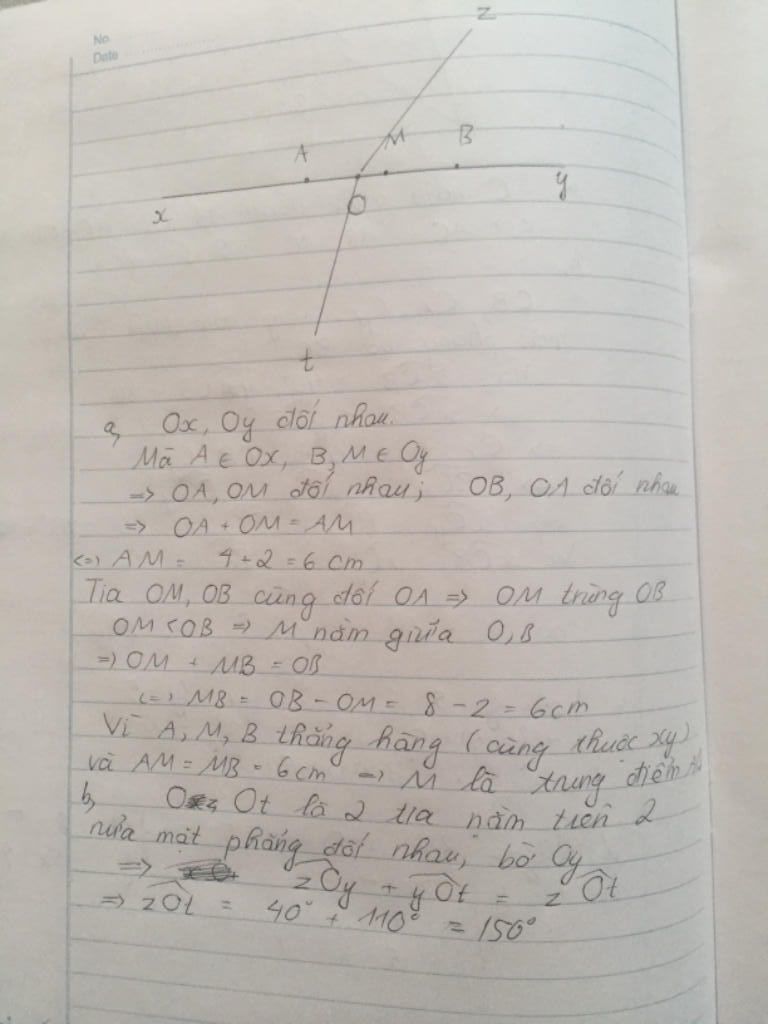 No.
Date
z
A
M
B
x
O
y
t
a, Ox, Oy đối nhau.
Mà A ∈ Ox, B, M ∈ Oy
=> OA, OM đối nhau; OB, OA đối nhau
=> OA + OM = AM
<=> AM = 4 + 2 = 6 cm
Tia OM, OB cùng đối OA => OM trùng OB
OM < OB => M nằm giữa O, B
=> OM + MB = OB
<=> MB = OB - OM = 8 - 2 = 6cm
Vì A, M, B thẳng hàng (cùng thuộc xy)
và AM = MB = 6cm => M là trung điểm
b, Oz, Ot là 2 tia nằm trên 2
nửa mặt phẳng đối nhau, bờ Oy
=> zOy + yOt = zOt
=> zOt = 40° + 110° = 150°